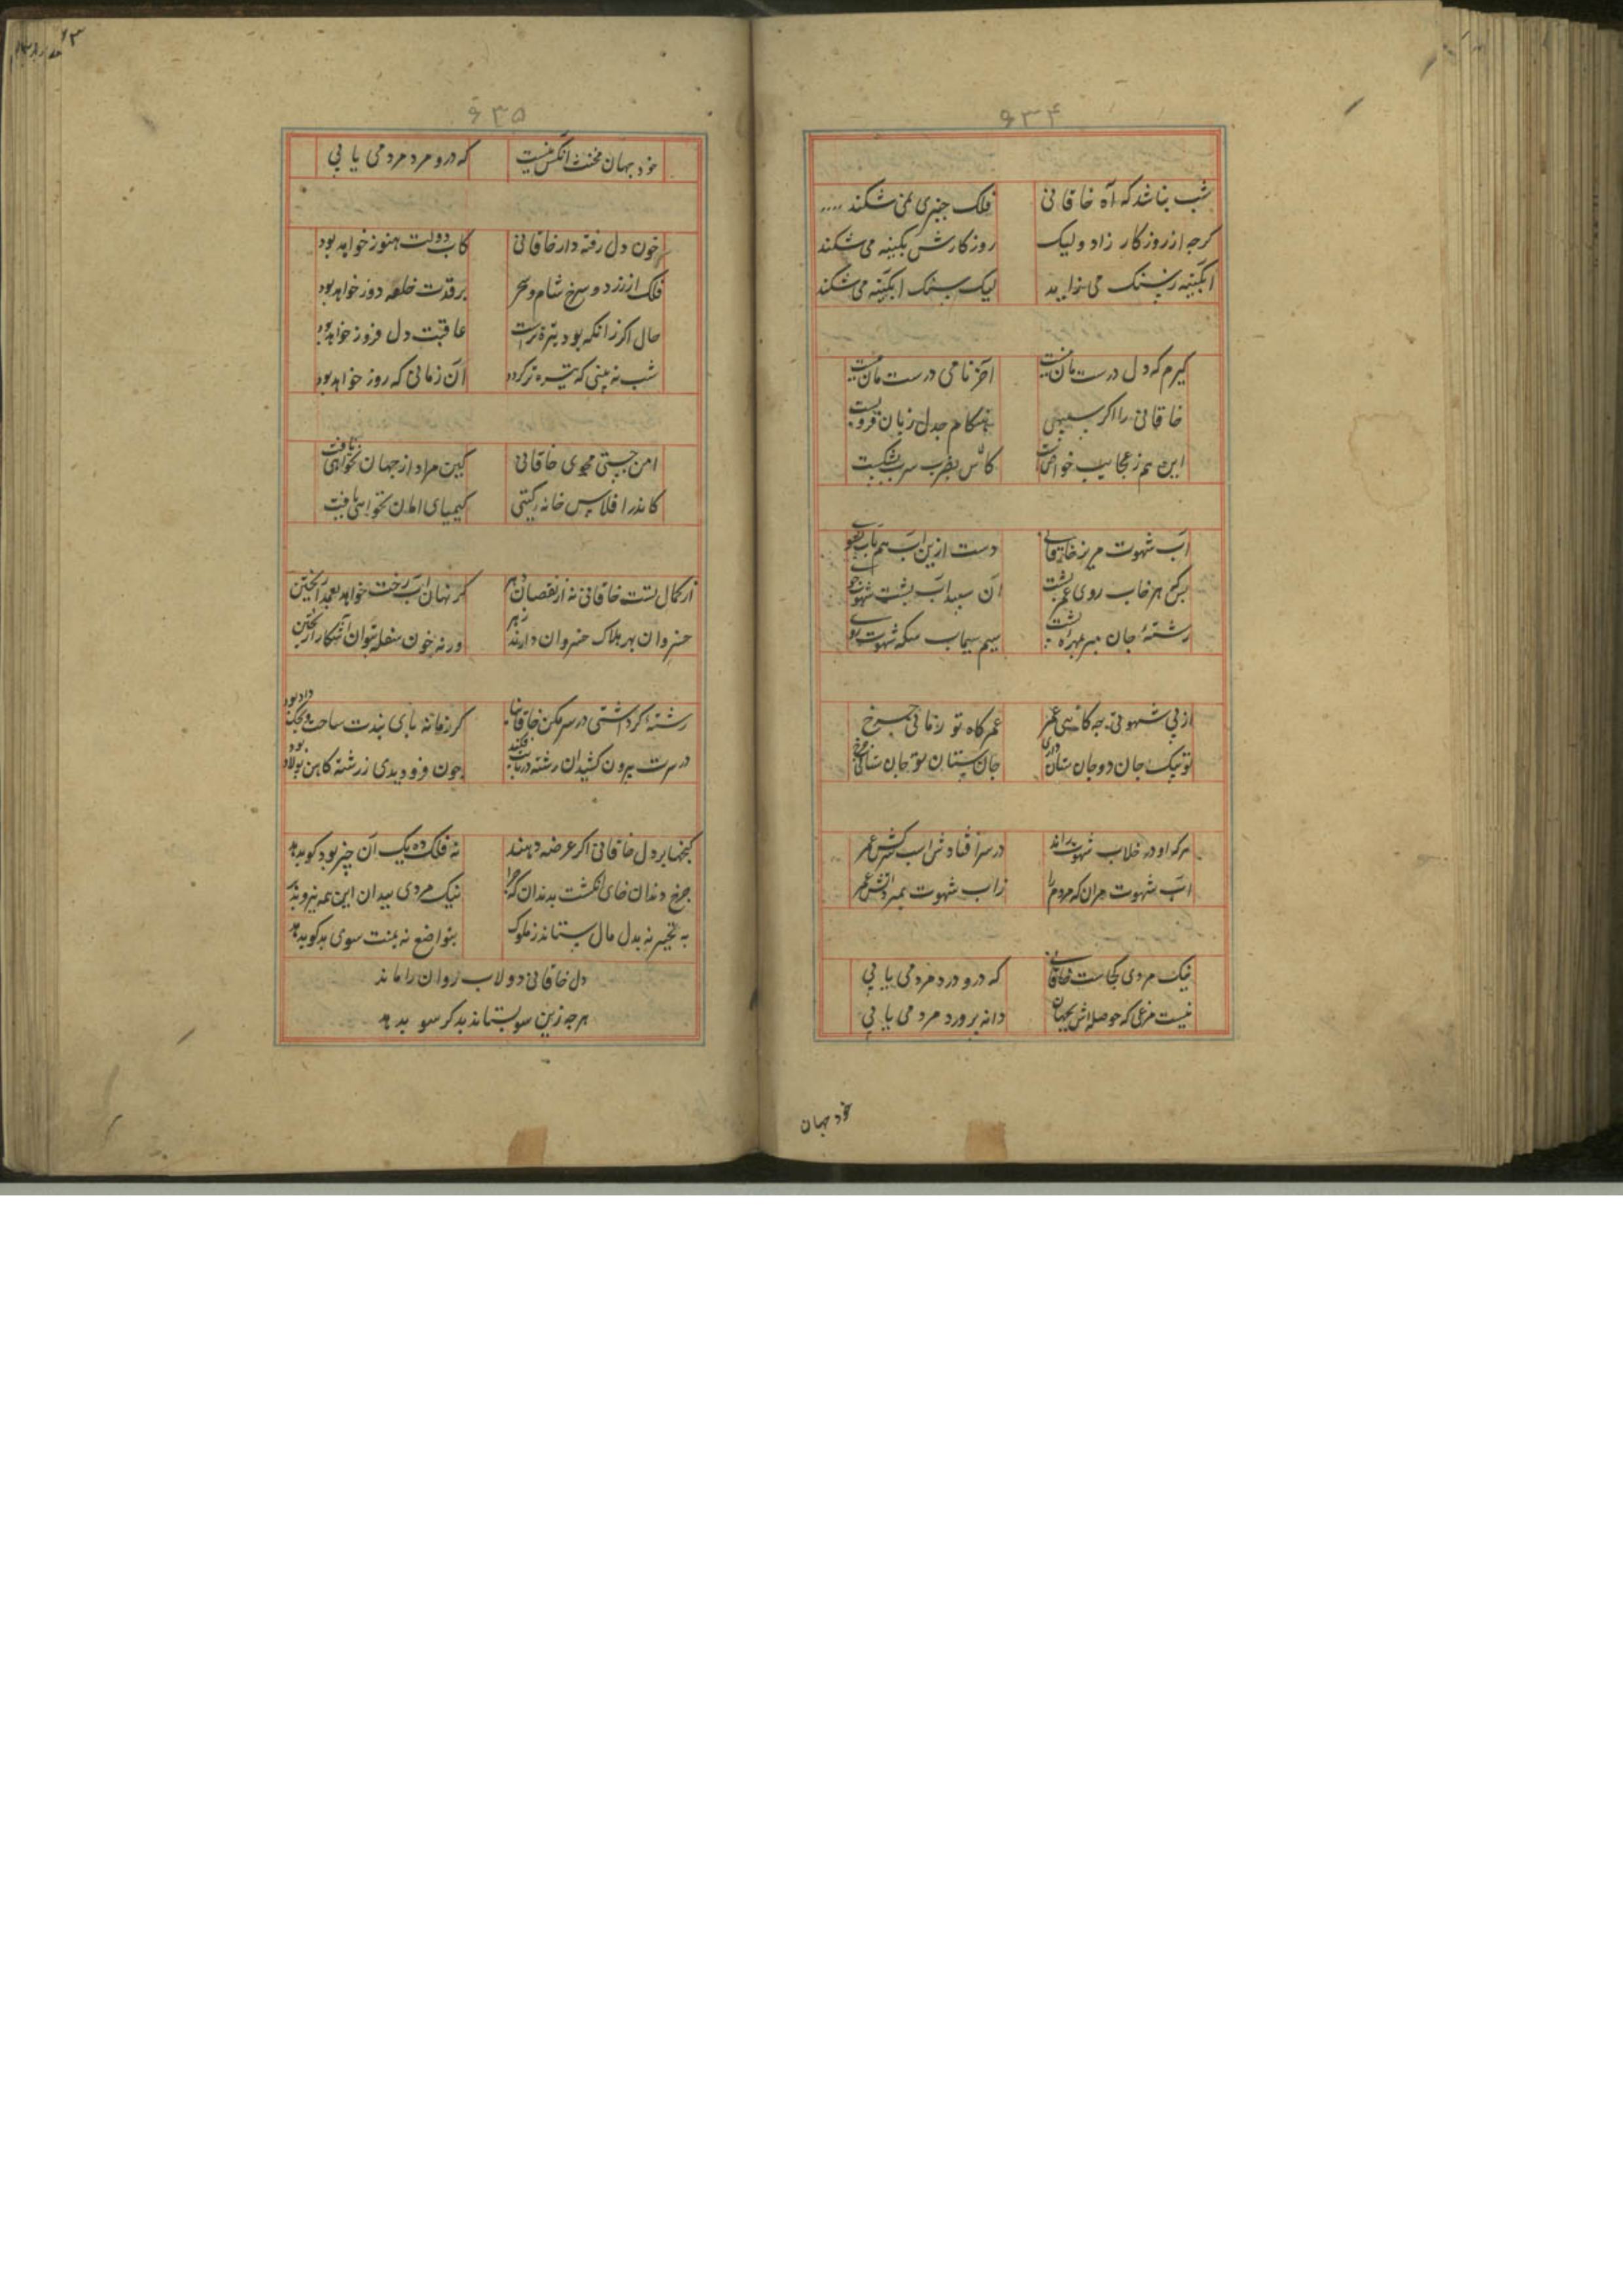 ۶۳۴
شب نباشد که آه خاقانی فلک چنبری نمی شکند
کرچه از روزکار زاد ولیک روزکارش بکینه می شکند
ابکینه زسنک می زاید لیک سنک ابکینه می شکند
کیرم که دل درست مان نیست آخر نامی درست مان نیست
خاقانی را اکر سبیهی هنکام جدل زبان فروبست
این هم ز عجایب خواص است کالماس بضرب سرب بشکست
اب شهوت مریز خاقانی دست ازین اب هم باب بشوی
بس که هر خاب روی عمر بشست ان سبید اب بشت شهوت جوی
رشتهٔ جان مبر مهرهٔ بشت سیم سیماب سکه شهوت
از پی شهوتی چه کاهی عمر عمر کاه تو زمانی چرخ
تو بیک جان دو جان ستان داری جان ستان تو جان ستانی چرخ
هرکه او در خلاب شهوت راند در سر افتاد شراب کش عمر
اب شهوت مران که مردم را زاب شهوت بمیرد اتش عمر
نیک مردی کجاست خاقانی که درو درد مردمی یابی
نیست مرغی که حوصله اش بجهان دانه پرورد مردمی یابی
خود جهان
۶۳۵
خود جهان مخنث انکس نیست که درو مرد مردمی یابی
خون دل رفته دار خاقانی کاب دولت هنوز خواهد بود
فلک از زرد و سرخ شام و سحر برقدت خلعه دوز خواهد بود
حال اکر زانکه بود بتره تراست عاقبت دل فروز خواهد بود
شب نه بینی که تیره تر کردد آن زمانی که روز خواهد بود
امن جستی مجوی خاقانی کین مراد از جهان نخواهی یافت
کاندر افلاس خانه کیتی کیمیای امان نخواهی یافت
از کمال تست خاقانی نه از نقصان دهر کر نهان اب رخت خواهد بعمدا ریختن
خسروان بهر هلاک خسروان دارند زهر ورنه خون سفله بتوان اشکارا ریختن
رشتهٔ کر داشتی در سر مکن خاقانیا کر زمانه بای بندت ساخت
در سرت بیرون کشیدان رشته در بایت فکند چون فرو دیدی ز رشته کاهن بولاد بود
کنجها بر دل خاقانی اکر عرضه دهند نه فلک ده یک آن چیز بود کو بدهد
چرخ دندان خای انکشت بدندان که چرا نیک مردی ببدان این همه نیرو بدهد
به تجبر نه بدل مال ستاند ز ملوک بتواضع نه بمنت سوی بدکو بدهد
دل خاقانی دولاب روان را ماند
هرچه زین سو بستاند بدکر سو بدهد